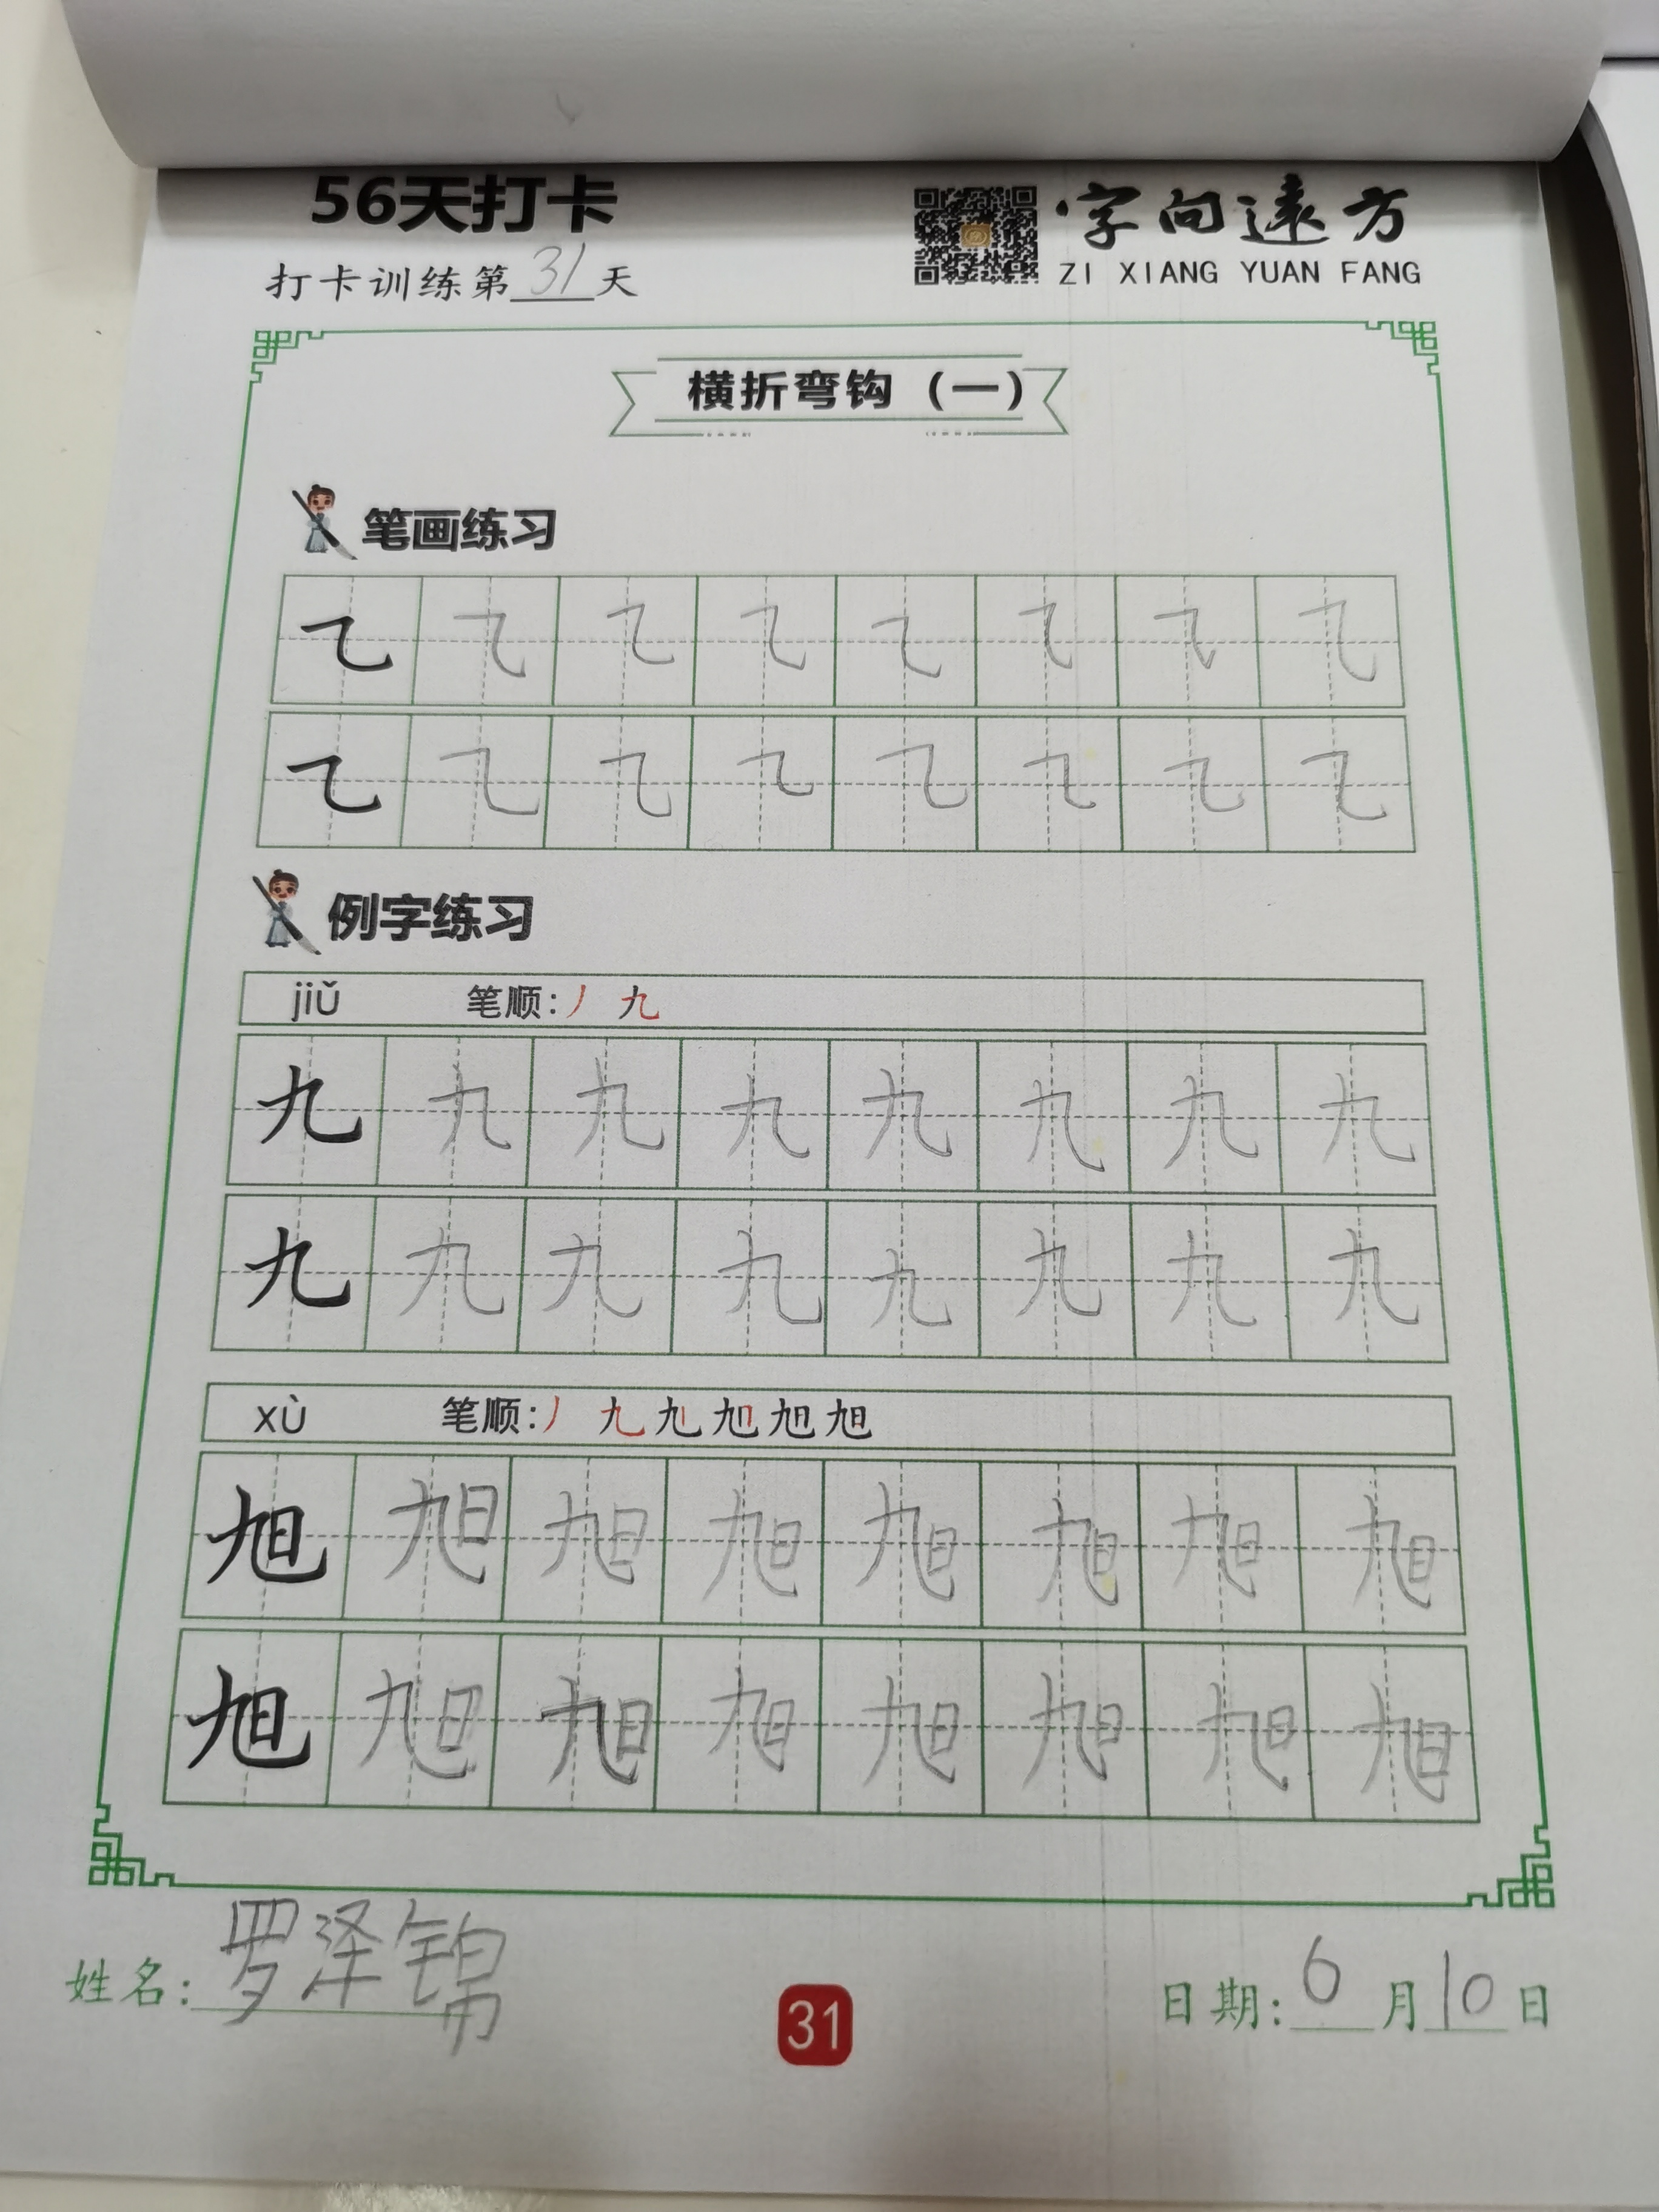 56天打卡
字向遠方
打卡训练第31天
ZI XIANG YUAN FANG
横折弯钩（一）
笔画练习
㇈ ㇈ ㇈ ㇈ ㇈ ㇈ ㇈ ㇈
㇈ ㇈ ㇈ ㇈ ㇈ ㇈ ㇈ ㇈
例字练习
jiǔ 笔顺：丿 九
九 九 九 九 九 九 九 九
九 九 九 九 九 九 九 九
xù 笔顺：丿 九 旭 旭 旭 旭
旭 旭 旭 旭 旭 旭 旭 旭
旭 旭 旭 旭 旭 旭 旭 旭
姓名：罗泽锦
31
日期：6月10日